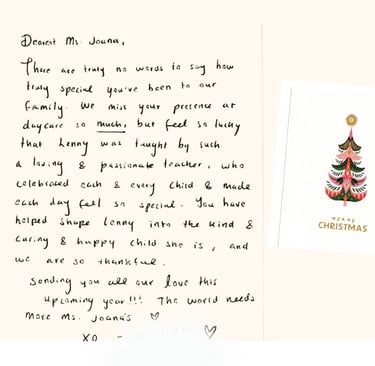 Dearest Ms. Joana,
There are truly no words to say how
truly special you've been to our
family. We miss your presence at
daycare so much, but feel so lucky
that Lenny was taught by such
a loving & passionate teacher, who
celebrated each & every child & made
each day feel so special. You have
helped shape Lenny into the kind &
caring & happy child she is, and
we are so thankful.
Sending you all our love this
upcoming year!!! The world needs
more Ms. Joana's ♡
XO - ♡
MERRY
CHRISTMAS